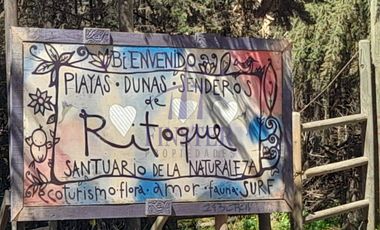 BiENVENIDO
PLAYAS · DUNAS · SENDEROS
de
Ritoque
PROPIEDADES
SANTUARIO DE LA NATURALEZA
ecoturismo · flora · amor · fauna · SURF